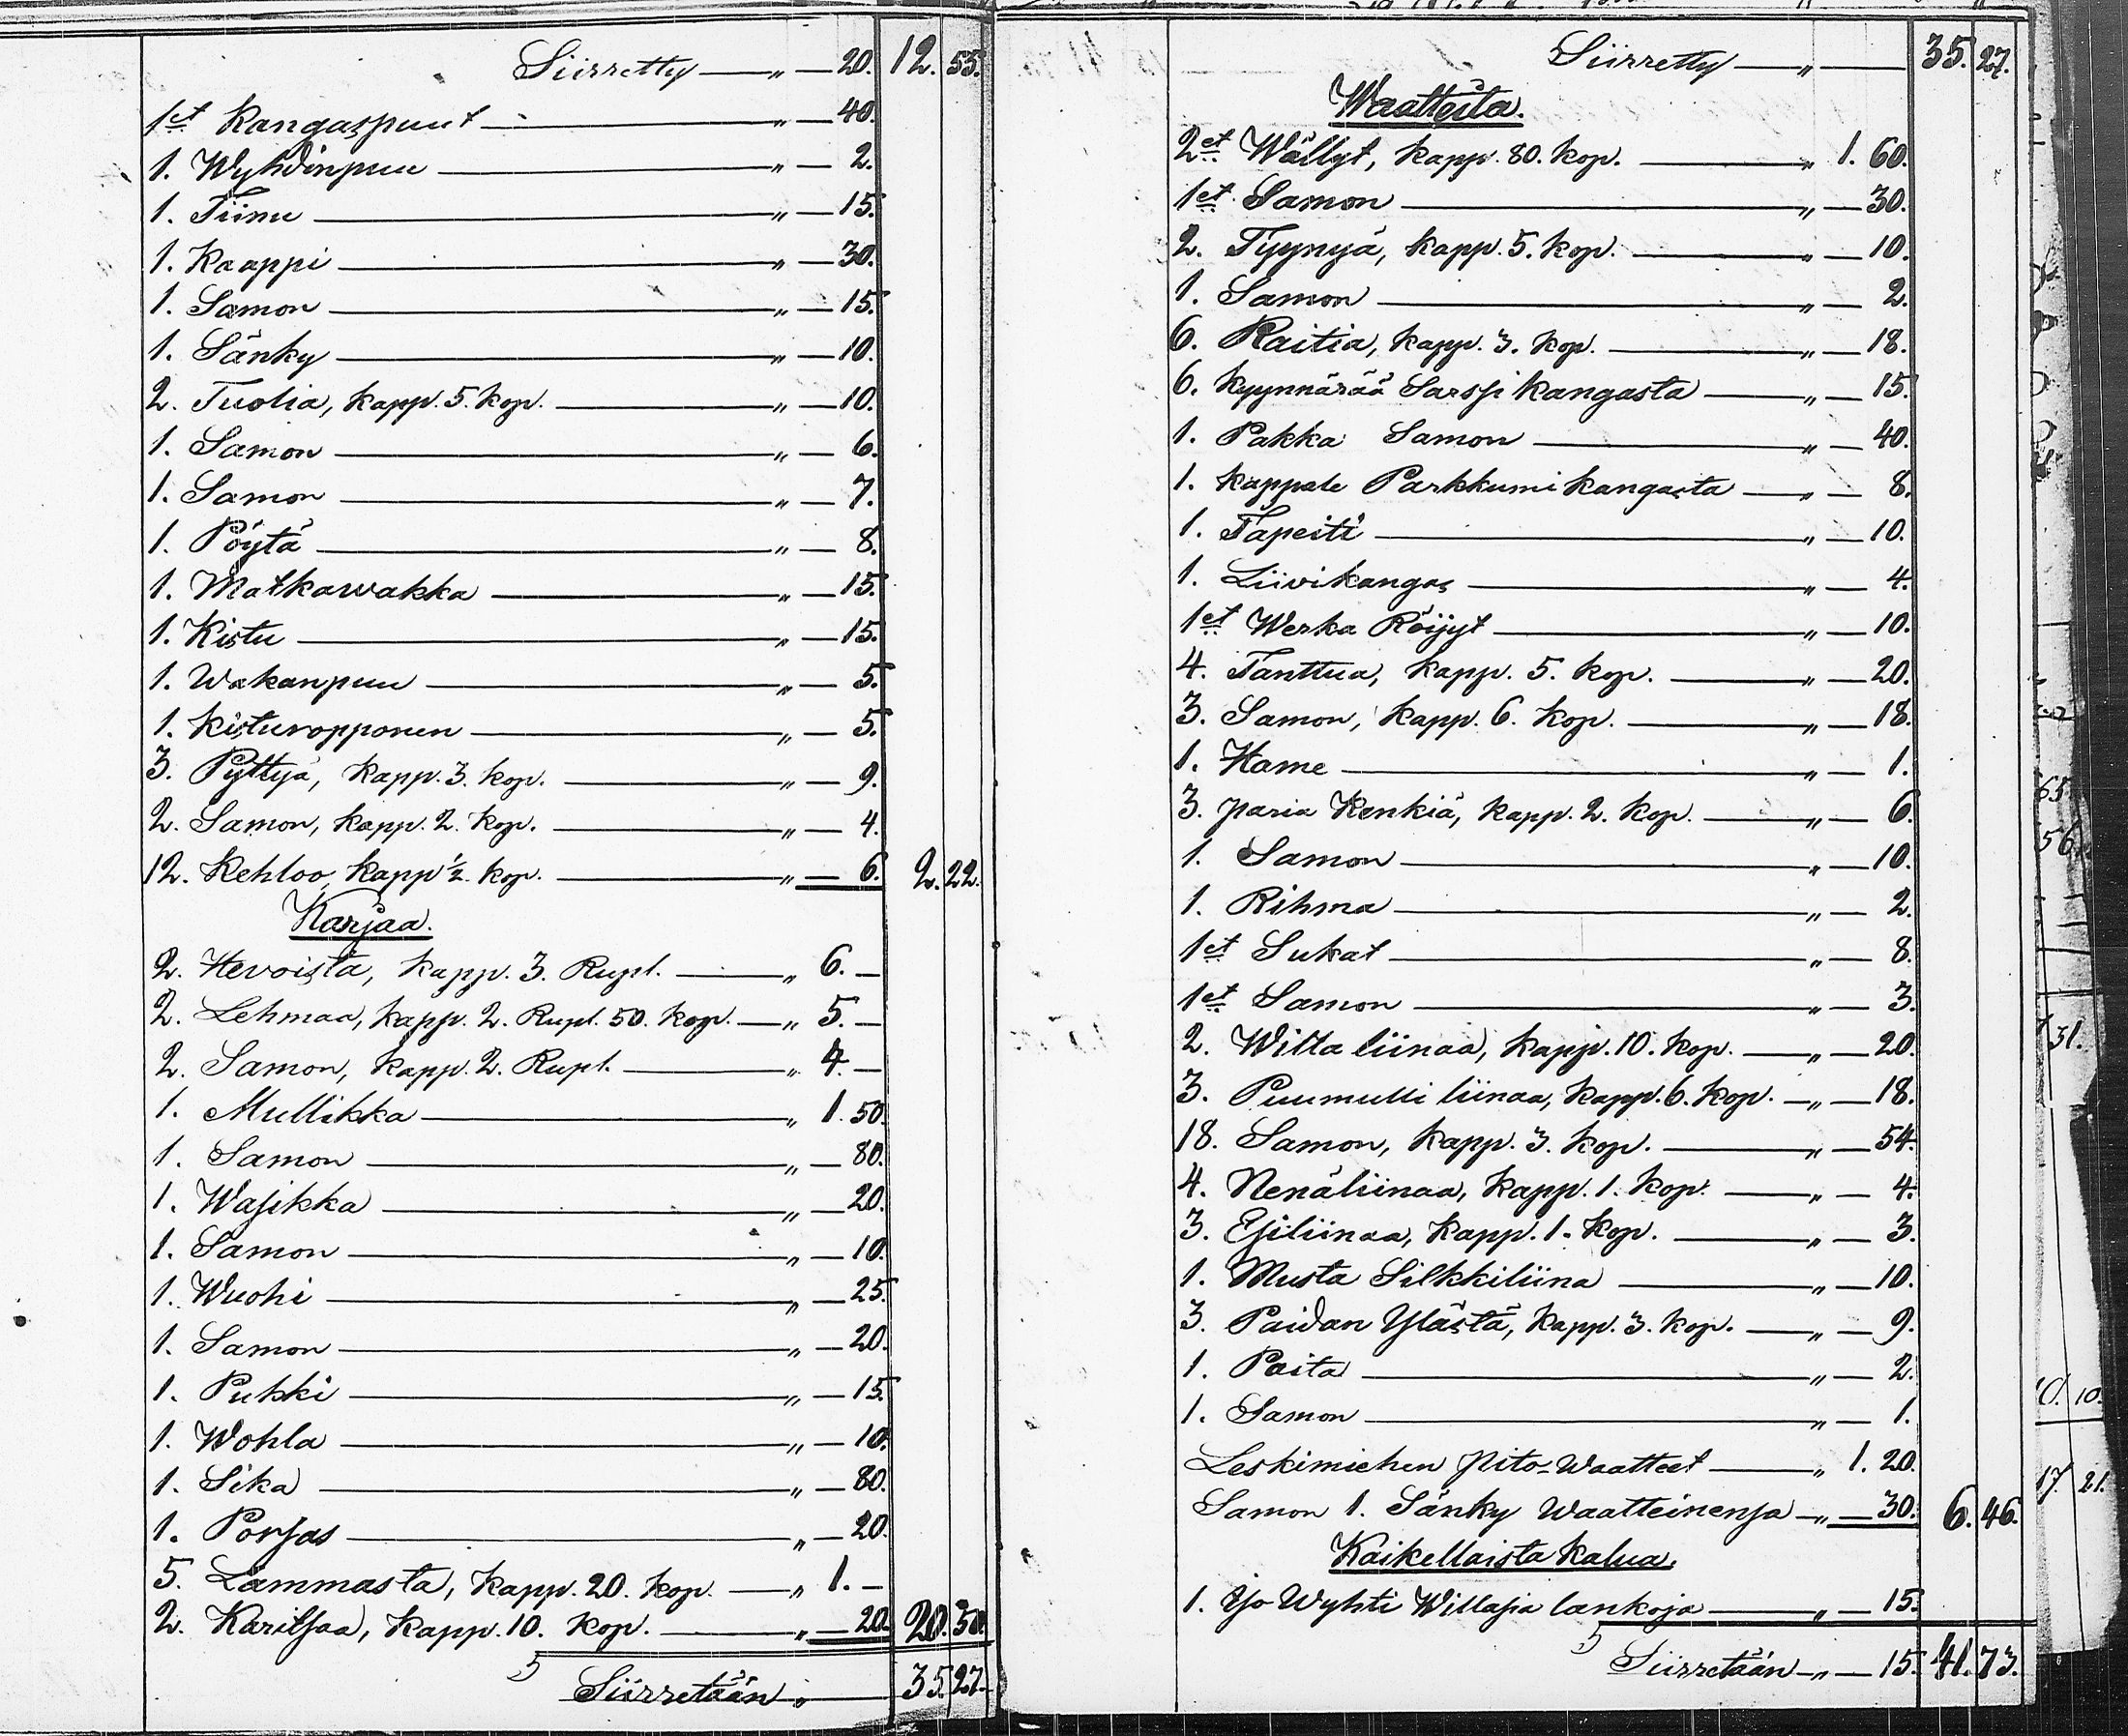 Siirretty — „ — 20. 12. 55.
1et Kangaspuut — „ — 40.
1. Wyhdinpuu — „ — 2.
1. Tiinu — „ — 15.
1. Kaappi — „ — 30.
1. Samon — „ — 15.
1. Sänky — „ — 10.
2. Tuolia, kapp. 5. kop. — „ — 10.
1. Samon — „ — 6.
1. Samon — „ — 7.
1. Pöytä — „ — 8.
1. Matkawakka — „ — 15.
1. Kistu — „ — 15.
1. Wakanpuu — „ — 5.
1. Kisturopponen — „ — 5.
3. Pyttyä, kapp. 3. kop. — „ — 9.
2. Samon, kapp. 2. kop. — „ — 4.
12. Kehloo, kapp ½ kop. — „ — 6. 2. 22.
Karjaa.
2. Hevoista, kapp. 3. Rupl. — „ 6. —
2. Lehmaa, kapp. 2. Rupl. 50. kop. — „ 5. —
2. Samon, kapp. 2. Rupl. — „ 4. —
1. Mullikka — „ 1. 50.
1. Samon — „ — 80.
1. Wasikka — „ — 20.
1. Samon — „ — 10.
1. Wuohi — „ — 25.
1. Samon — „ — 20.
1. Pukki — „ — 15.
1. Wohla — „ — 10.
1. Sika — „ — 80.
1. Porsas — „ — 20.
5. Lammasta, kapp. 20. kop. — „ 1. —
2. Karitsaa, kapp. 10. kop. — „ — 20. 20. 50.
Siirretään „ — 35. 27.
Siirretty — „ — 35. 27.
Waatteita.
2et Wällyt, kapp. 80. kop. — „ 1. 60.
1et Samon — „ — 30.
2. Tyynyä, kapp. 5. kop. — „ — 10.
1. Samon — „ — 2.
6. Raitia, kapp. 3. kop. — „ — 18.
6. kyynnärää Sarssi kangasta — „ — 15.
1. Pakka Samon — „ — 40.
1. kappale Parkkumi kangasta — „ — 8.
1. Tapeiti — „ — 10.
1. Liivikangas — „ — 4.
1et Werka Röijyt — „ — 10.
4. Tanttua, kapp. 5. kop. — „ — 20.
3. Samon, kapp. 6. kop. — „ — 18.
1. Hame — „ — 1.
3. paria Kenkiä, kapp. 2. kop. — „ — 6.
1. Samon — „ — 10.
1. Rihma — „ — 2.
1et Sukat — „ — 8.
1et Samon — „ — 3.
2. Willa liinaa, kapp. 10. kop. — „ — 20.
3. Puumulli liinaa, kapp. 6. kop. — „ — 18.
18. Samon, kapp. 3. kop. — „ — 54.
4. Nenäliinaa, kapp. 1. kop. — „ — 4.
3. Esiliinaa, kapp. 1. kop. — „ — 3.
1. Musta Silkkiliina — „ — 10.
3. Paidan Ylästä, kapp. 3. kop. — „ — 9.
1. Paita — „ — 2.
1. Samon — „ — 1.
Leskimiehen Pito-Waatteet — „ 1. 20.
Samon 1. Sänky Waatteinensa — „ — 30. 6. 46.
Kaikellaista Kalua.
1. iso Wyhti Willasia lankoja — „ — 15.
Siirretään — „ — 15. 41. 73.